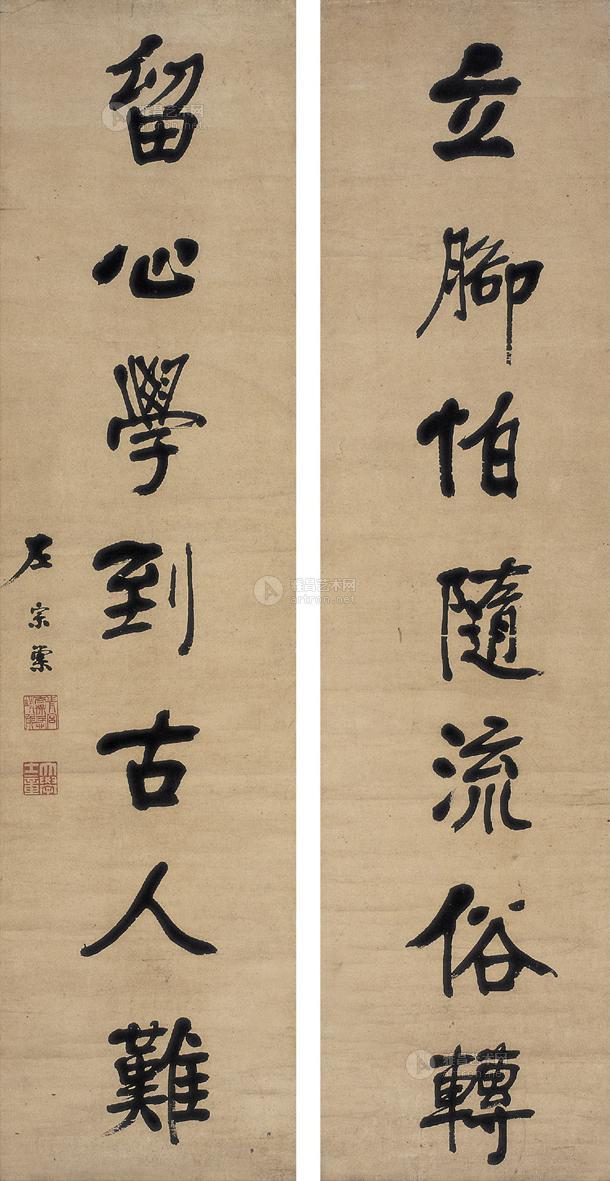 立腳怕隨流俗轉
留心學到古人難
左宗棠
雅昌艺术网
artron.net